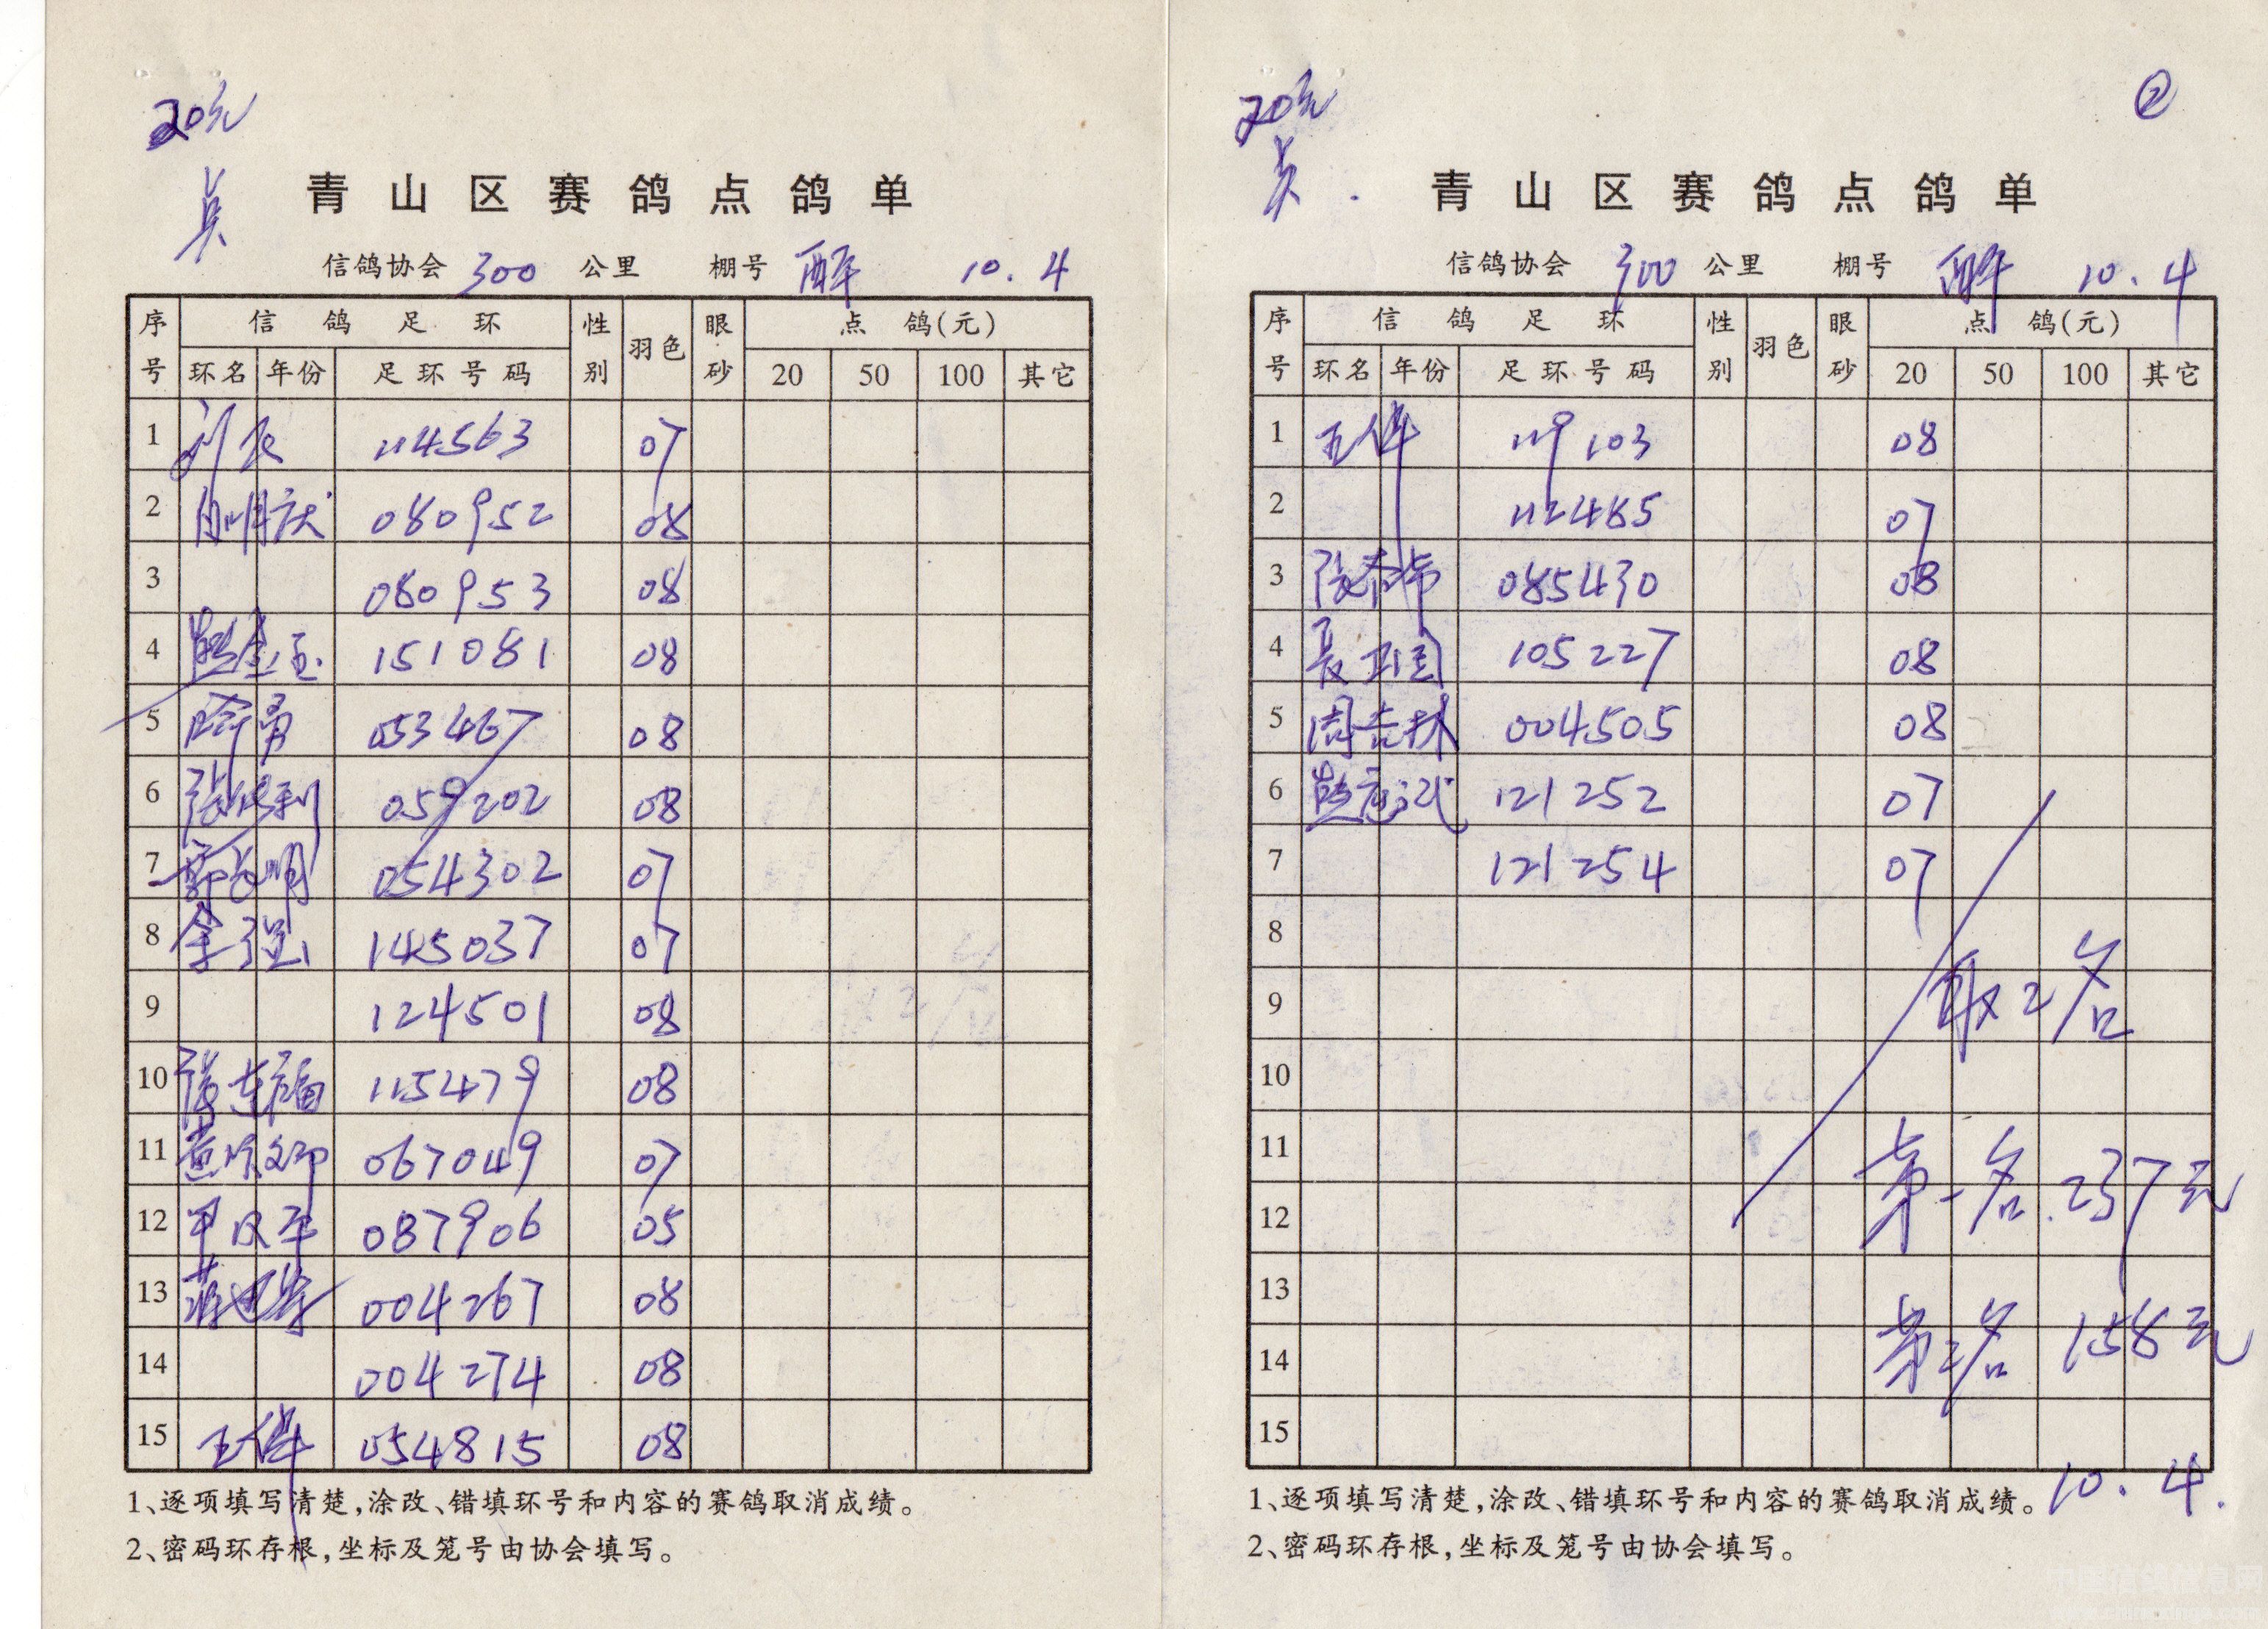 20元
吴
青山区赛鸽点鸽单
信鸽协会 300 公里 棚号 10.4
序号 信鸽足环 性别 羽色 眼砂 点鸽(元)
环名 年份 足环号码 20 50 100 其它
1 114563 07
2 080952 08
3 080953 08
4 151081 08
5 053467 08
6 059202 08
7 054302 07
8 余强 145037 07
9 124501 08
10 115479 08
11 067049 07
12 087906 05
13 004267 08
14 004274 08
15 王伟 054815 08
1、逐项填写清楚,涂改、错填环号和内容的赛鸽取消成绩。
2、密码环存根,坐标及笼号由协会填写。
20元
②
吴
青山区赛鸽点鸽单
信鸽协会 300 公里 棚号 10.4
序号 信鸽足环 性别 羽色 眼砂 点鸽(元)
环名 年份 足环号码 20 50 100 其它
1 王伟 119103 08
2 112485 07
3 085430 08
4 105227 08
5 周吉林 004505 08
6 121252 07
7 121254 07
8
9 取2名
10
11
12 第一名 237元
13
14 第2名 158元
15
10.4.
1、逐项填写清楚,涂改、错填环号和内容的赛鸽取消成绩。
2、密码环存根,坐标及笼号由协会填写。